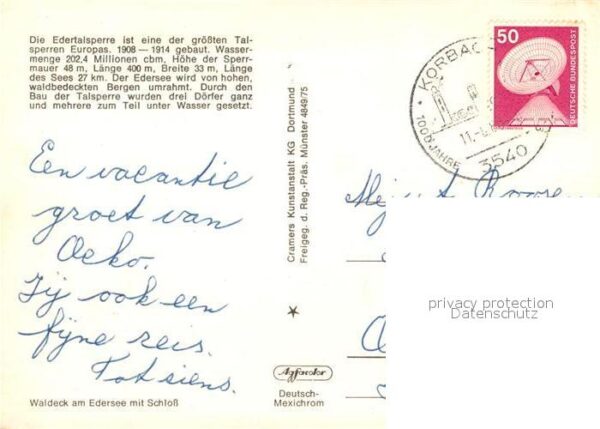 Die Edertalsperre ist eine der größten Tal-
sperren Europas. 1908 — 1914 gebaut. Wasser-
menge 202,4 Millionen cbm, Höhe der Sperr-
mauer 48 m, Länge 400 m, Breite 33 m, Länge
des Sees 27 km. Der Edersee wird von hohen,
waldbedeckten Bergen umrahmt. Durch den
Bau der Talsperre wurden drei Dörfer ganz
und mehrere zum Teil unter Wasser gesetzt.
Een vacantie
groet van
Oeko.
Jij ook een
fijne reis.
Tot siens.
Waldeck am Edersee mit Schloß
Cramers Kunstanstalt KG Dortmund
Freigeg. d. Reg.-Präs. Münster 4849/75
Agfacolor
Deutsch-
Mexichrom
KORBAC
1000 JAHRE
3540
50
DEUTSCHE BUNDESPOST
privacy protection
Datenschutz